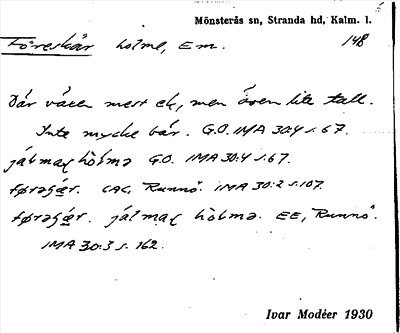 Mönsterås sn, Stranda hd, Kalm. l.
Föreskär holme, Em. 148
Där växer mest ek, men även lite tall.
Inte mycke bär. G.O. IMA 30:4 s. 67.
hölmə G.O. IMA 30:4 s. 67.
CAG, Runnö. IMA 30:2 s. 107.
hölmə. EE, Runnö.
IMA 30:3 s. 162.
Ivar Modéer 1930